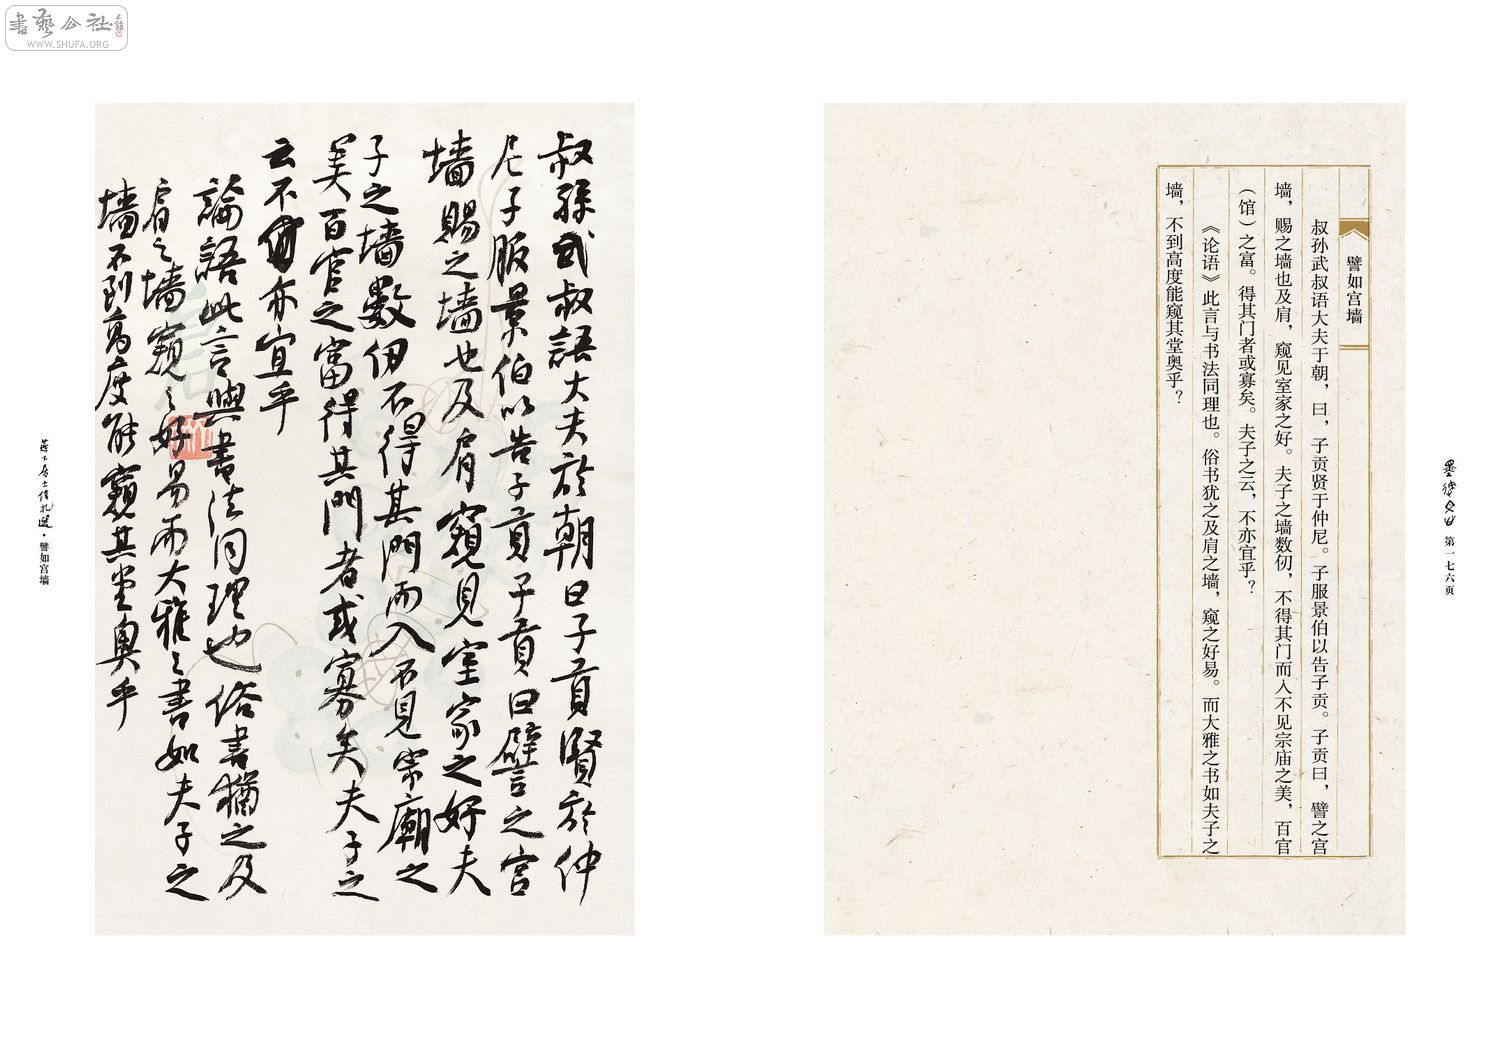 書藝公社
WWW.SHUFA.ORG
第一七六页
譬如宫墙
叔孙武叔语大夫于朝，曰，子贡贤于仲尼。子服景伯以告子贡。子贡曰，譬之宫
墙，赐之墙也及肩，窥见室家之好。夫子之墙数仞，不得其门而入不见宗庙之美，百官
（馆）之富。得其门者或寡矣。夫子之云，不亦宜乎？
《论语》此言与书法同理也。俗书犹之及肩之墙，窥之好易。而大雅之书如夫子之
墙，不到高度能窥其堂奥乎？
叔孫武叔語大夫於朝曰子貢賢於仲
尼子服景伯以告子貢子貢曰譬之宫
墙賜之墙也及肩窺見室家之好夫
子之墙數仞不得其門而入不見宗廟之
美百官之富得其門者或寡矣夫子之
云不亦宜乎
論語此言與書法同理也俗書猶之及
肩之墙窺〻好易而大雅〻書如夫子之
墙不到高度能窺其堂奥乎
居士信札選·譬如宫墙